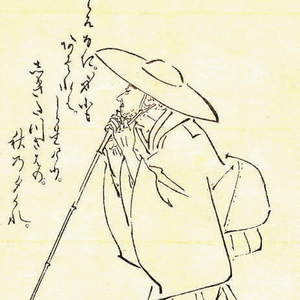 ろなき。身にも
あはれは
しられけり。
しぎたつさはの。
秋の夕くれ。